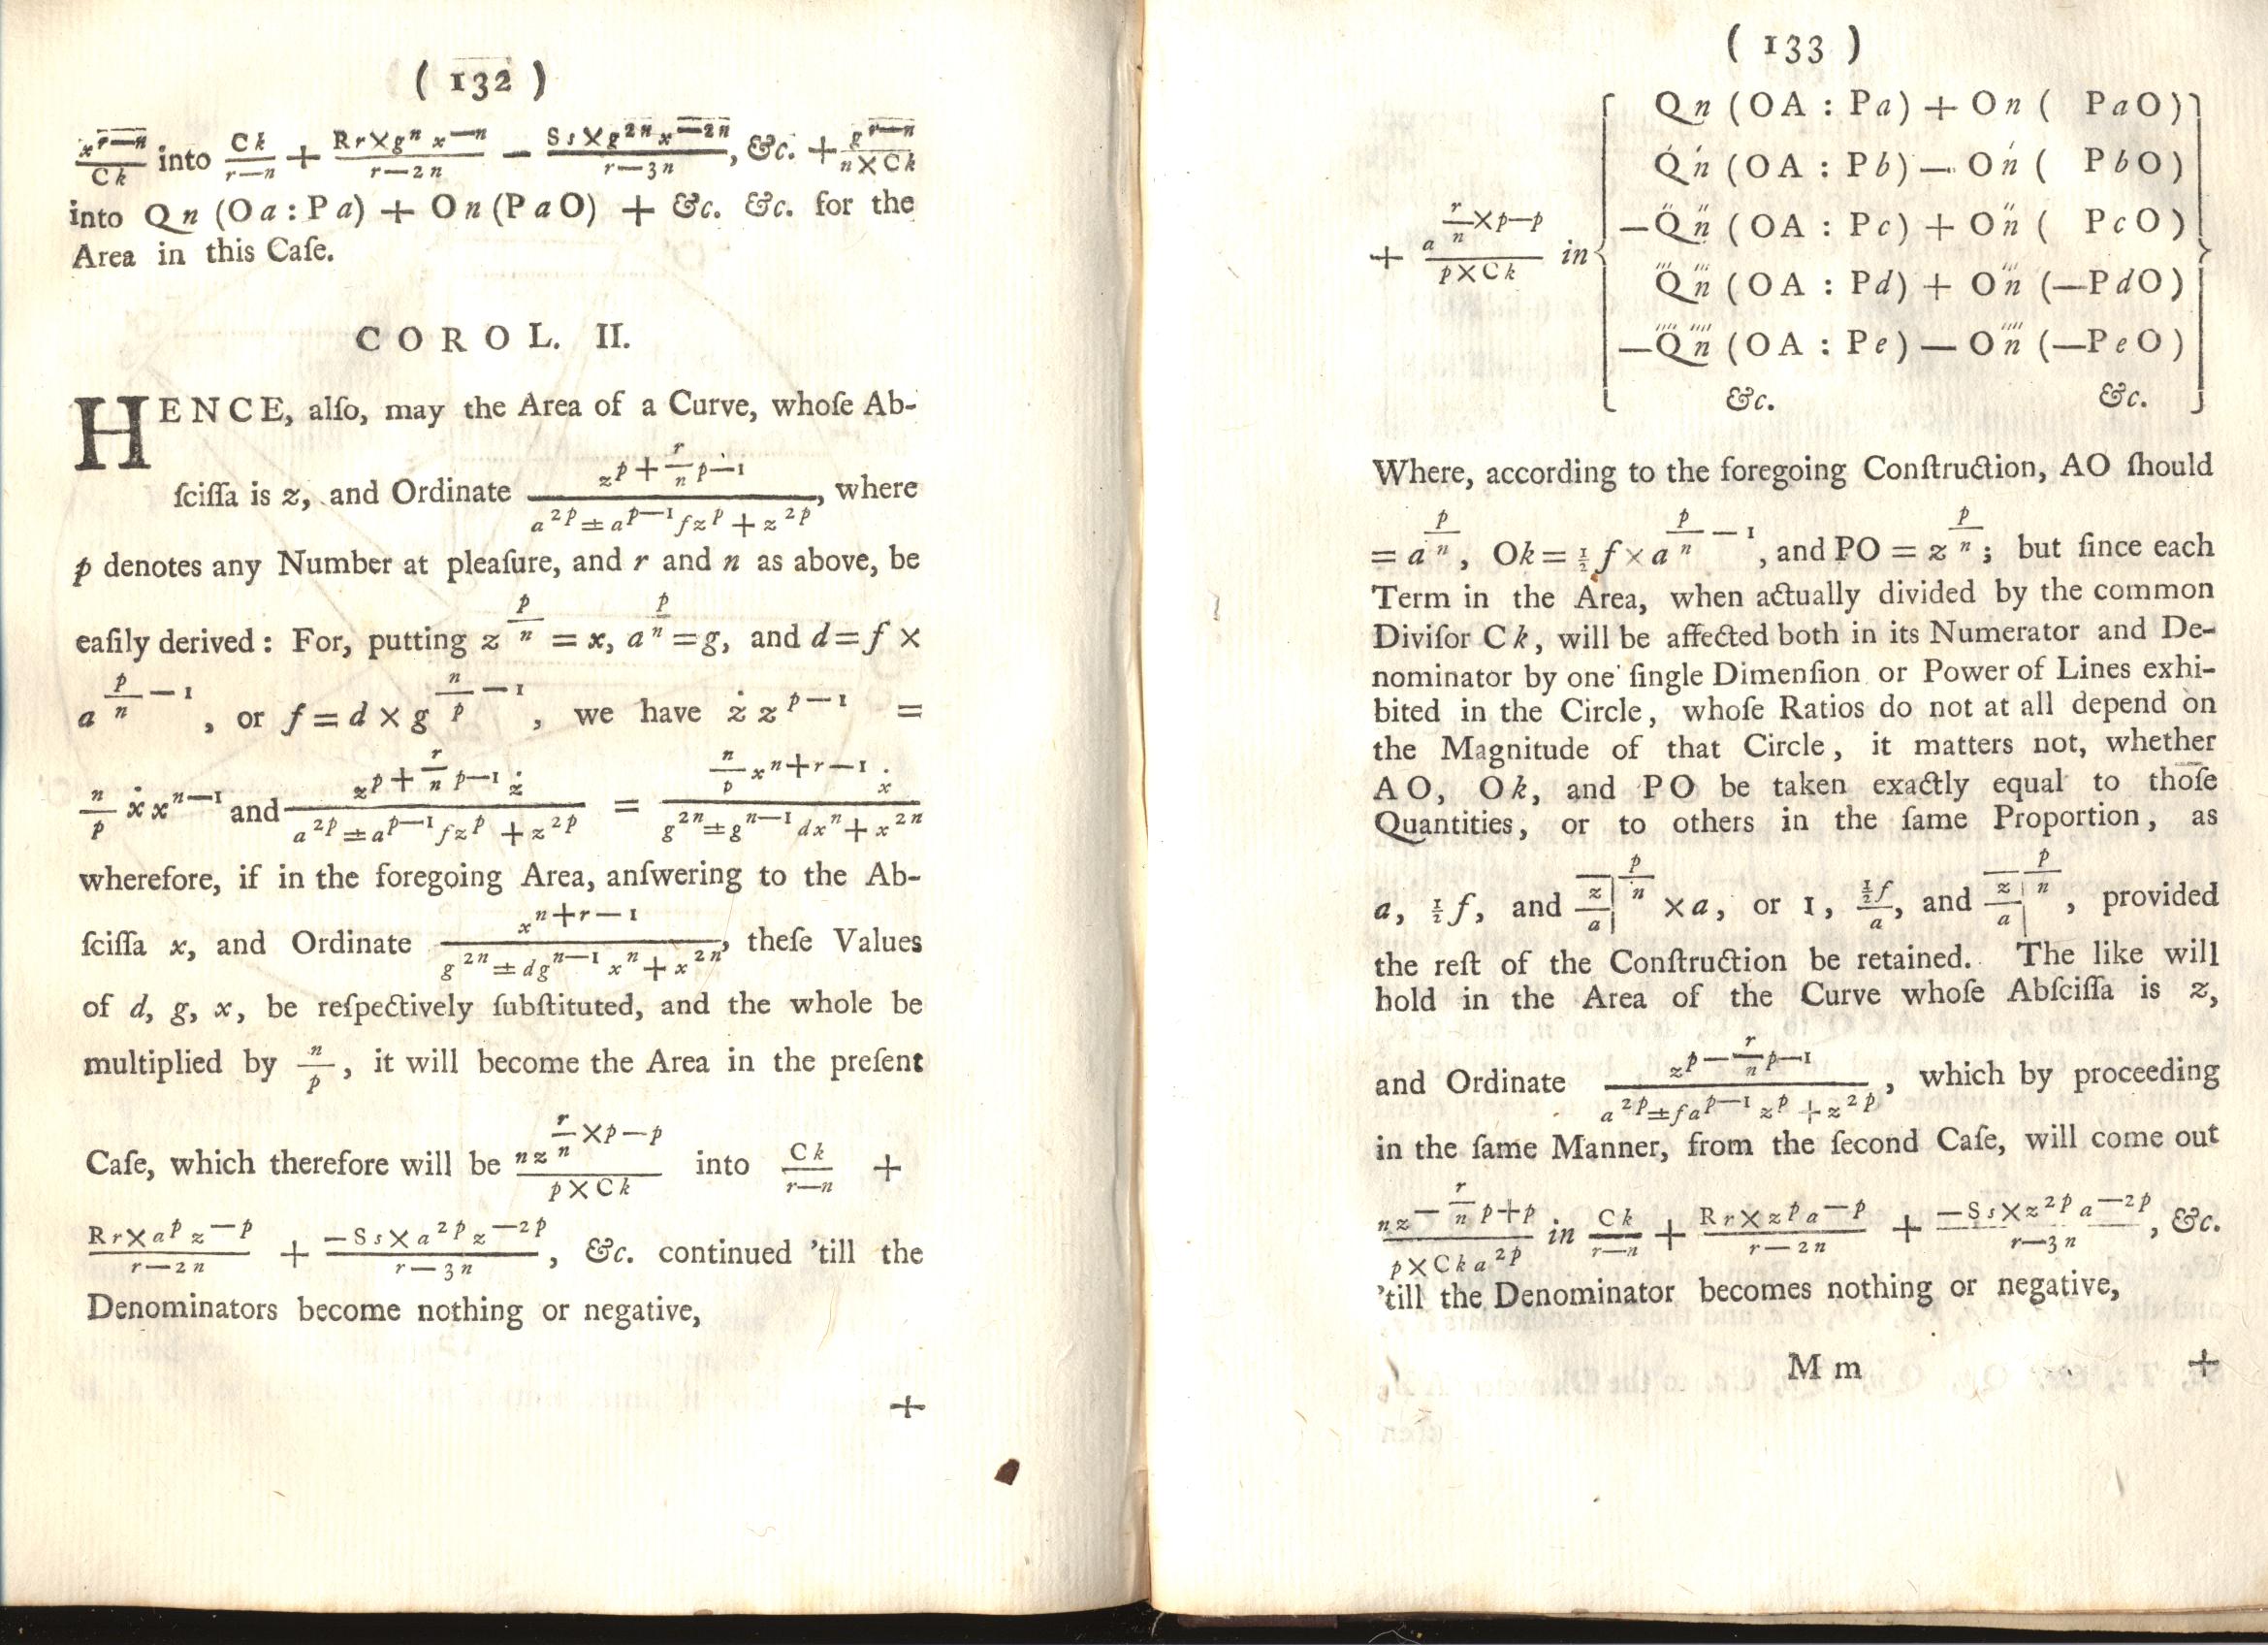 ( 132 )
x^{r—n}/Ck into Ck/r—n + Rr×gⁿ x^{—n}/r—2n — Ss×g^{2n} x^{—2n}/r—3n, &c. + g^{r—n}/n×Ck
into Qn (Oa : Pa) + On (PaO) + &c. &c. for the
Area in this Caſe.
COROL. II.
HENCE, alſo, may the Area of a Curve, whoſe Ab-
ſciſſa is z, and Ordinate z^{p + r/n p—1}/a^{2p} ± a^{p—1} fz^p + z^{2p}, where
p denotes any Number at pleaſure, and r and n as above, be
eaſily derived : For, putting z^{p/n} = x, a^{p/n} = g, and d = f ×
a^{p/n — 1}, or f = d × g^{n/p — 1}, we have ż z^{p—1} =
n/p ẋ x^{n—1} and z^{p + r/n p—1} ż/a^{2p} ± a^{p—1} fz^p + z^{2p} = n/p x^{n+r—1} ẋ/g^{2n} ± g^{n—1} dxⁿ + x^{2n}
wherefore, if in the foregoing Area, anſwering to the Ab-
ſciſſa x, and Ordinate x^{n+r—1}/g^{2n} ± dg^{n—1} xⁿ + x^{2n}, theſe Values
of d, g, x, be reſpectively ſubſtituted, and the whole be
multiplied by n/p, it will become the Area in the preſent
Caſe, which therefore will be nz^{r/n ×p—p}/p×Ck into Ck/r—n +
Rr×a^p z^{—p}/r—2n + —Ss×a^{2p} z^{—2p}/r—3n, &c. continued 'till the
Denominators become nothing or negative,
+
( 133 )
+ a^{r/n ×p—p}/p×Ck in
Qn (OA : Pa) + On ( PaO)
Q́ń (OA : Pb) — Oń ( PbO)
—Q̋n̋ (OA : Pc) + On̋ ( PcO)
Q‴n‴ (OA : Pd) + On‴ (—PdO)
—Q⁗n⁗ (OA : Pe) — On⁗ (—PeO)
&c. &c.
Where, according to the foregoing Conſtruction, AO ſhould
= a^{p/n}, Ok = ½ f × a^{p/n — 1}, and PO = z^{p/n}; but ſince each
Term in the Area, when actually divided by the common
Diviſor Ck, will be affected both in its Numerator and De-
nominator by one ſingle Dimenſion or Power of Lines exhi-
bited in the Circle, whoſe Ratios do not at all depend on
the Magnitude of that Circle, it matters not, whether
AO, Ok, and PO be taken exactly equal to thoſe
Quantities, or to others in the ſame Proportion, as
a, ½f, and z/a|^{p/n} ×a, or 1, ½f/a, and z/a|^{p/n}, provided
the reſt of the Conſtruction be retained. The like will
hold in the Area of the Curve whoſe Abſciſſa is z,
and Ordinate z^{p — r/n p—1}/a^{2p} ± fa^{p—1} z^p + z^{2p}, which by proceeding
in the ſame Manner, from the ſecond Caſe, will come out
nz^{— r/n p+p}/p×Cka^{2p} in Ck/r—n + Rr×z^p a^{—p}/r—2n + —Ss×z^{2p} a^{—2p}/r—3n, &c.
'till the Denominator becomes nothing or negative,
M m +